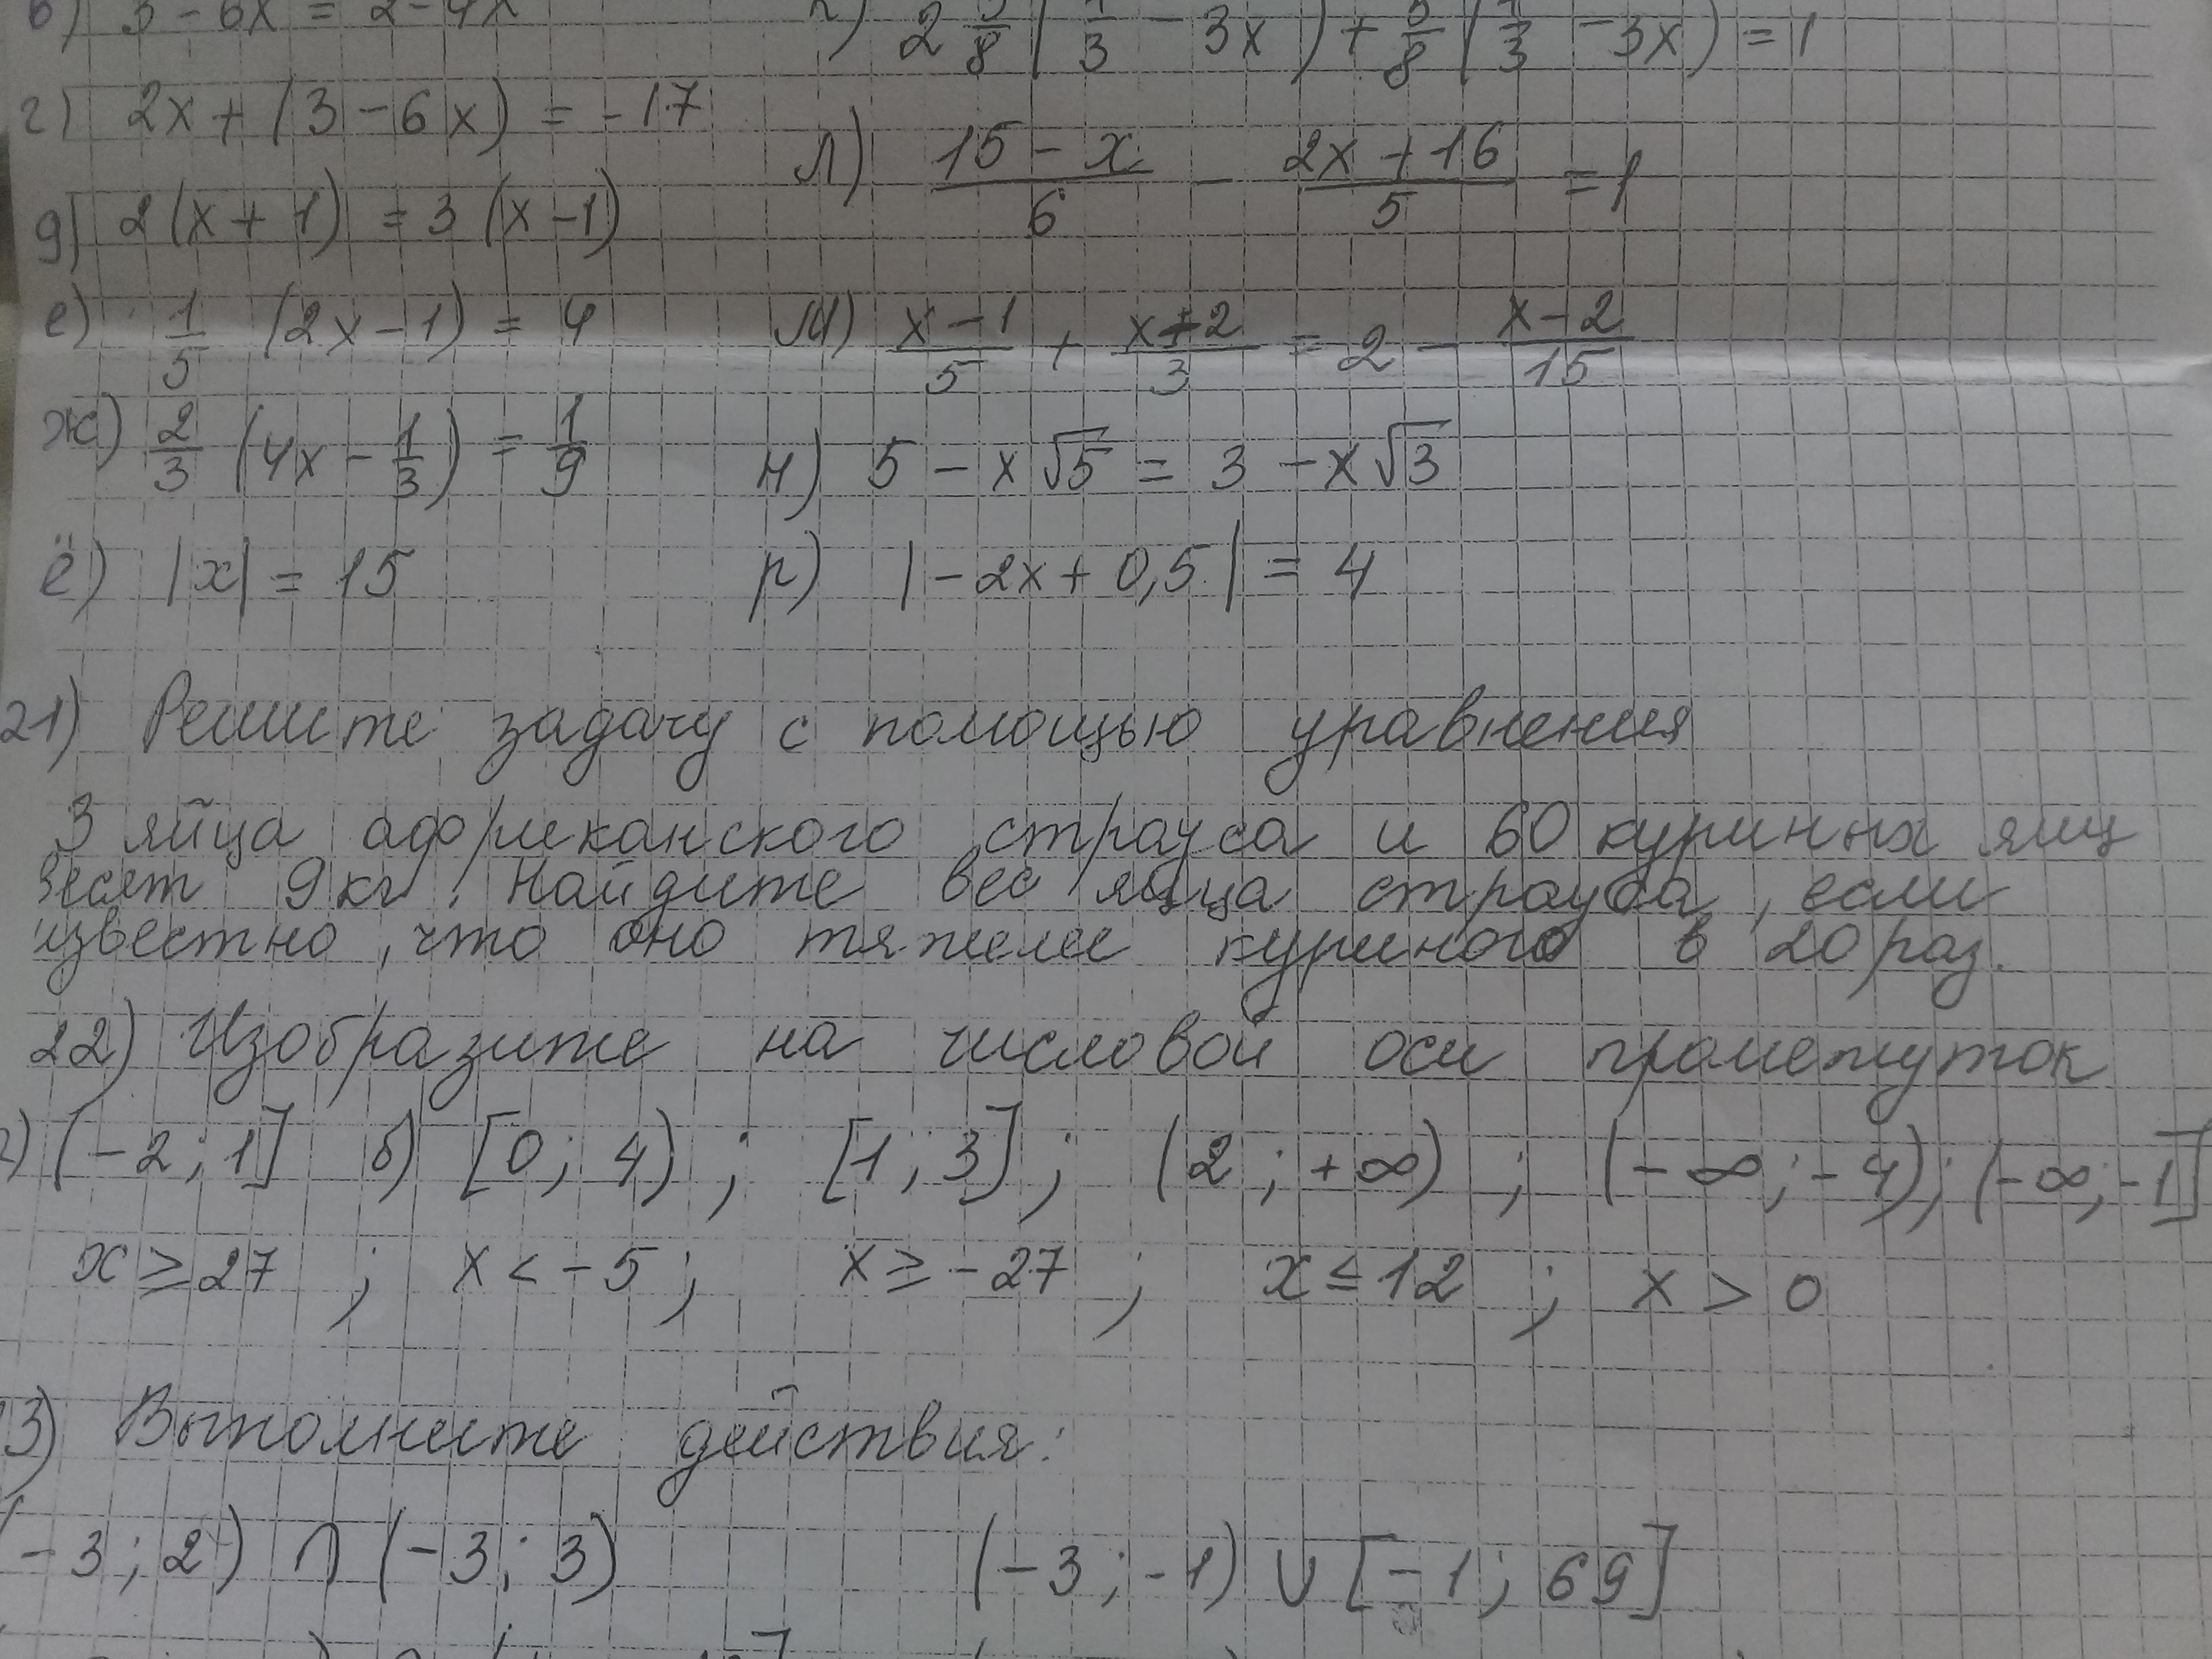 в) 3 - 6x = 2 - 4x
2 8 ( 3 - 3x ) + 8 ( 3 - 3x ) = 1
г) 2x + (3 - 6x) = -17
л) (15 - x)/6 - (2x + 16)/5 = 1
д) 2(x + 1) = 3(x - 1)
е) 1/5 (2x - 1) = 4
м) (x - 1)/5 + (x + 2)/3 = 2 - (x - 2)/15
ж) 2/3 (4x - 1/3) = 1/9
н) 5 - x√5 = 3 - x√3
ё) |x| = 15
р) |-2x + 0,5| = 4
21) Решите задачу с помощью уравнения
3 яйца африканского страуса и 60 куриных яиц
весят 9 кг. Найдите вес яйца страуса, если
известно, что оно тяжелее куриного в 20 раз.
22) Изобразите на числовой оси промежуток
(-2; 1] б) [0; 4) ; [1; 3] ; (2; +∞) ; (-∞; -4); (-∞; -1]
x ≥ 27 ; x < -5 ; x ≥ -27 ; x ≤ 12 ; x > 0
3) Выполните действия:
-3; 2) ∩ (-3; 3) (-3; -1) ∪ [-1; 69]